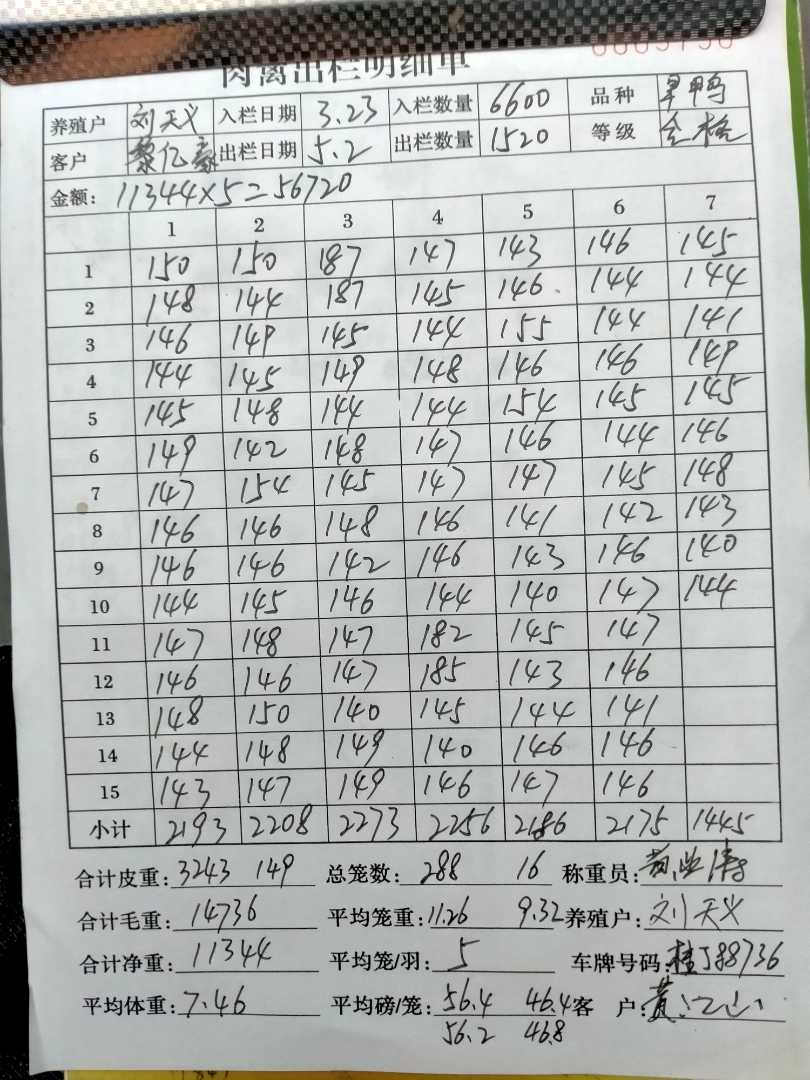 肉禽出栏明细单
养殖户 刘天义 入栏日期 3.23 入栏数量 6600 品种 旱鸭
客户 黎亿豪 出栏日期 5.2 出栏数量 1520 等级 合格
金额: 11344×5=56720
1 2 3 4 5 6 7
1 150 150 187 147 143 146 145
2 148 144 187 145 146 144 144
3 146 149 145 144 155 144 141
4 144 145 149 148 146 146 149
5 145 148 144 144 154 145 145
6 149 142 148 147 146 144 146
7 147 154 145 147 147 145 148
8 146 146 148 146 141 142 143
9 146 146 142 146 143 146 140
10 144 145 146 144 140 147 144
11 147 148 147 182 145 147
12 146 146 147 185 143 146
13 148 150 140 145 144 141
14 144 148 149 140 146 146
15 143 147 149 146 147 146
小计 2193 2208 2273 2256 2186 2175 1445
合计皮重: 3243 149 总笼数: 288 16 称重员:
合计毛重: 14736 平均笼重: 11.26 9.32 养殖户: 刘天义
合计净重: 11344 平均笼/羽: 5 车牌号码: 桂J88736
平均体重: 7.46 平均磅/笼: 56.4 46.4 客 户: 黄
56.2 46.8